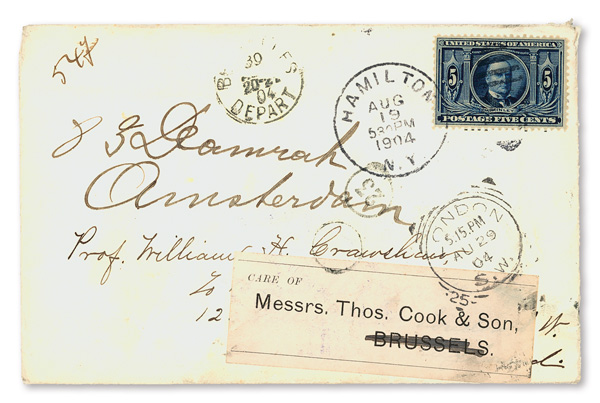 547
UNITED STATES OF AMERICA
5 5
POSTAGE FIVE CENTS
DEPART
04
HAMILTON
AUG
19
530PM
1904
N.Y.
8 Damrak
Amsterdam
LONDON
5.15.PM
AU 29
04
S.W.
25
Prof. William H. Crawshaw
CARE OF
Messrs. Thos. Cook & Son,
BRUSSELS.
12